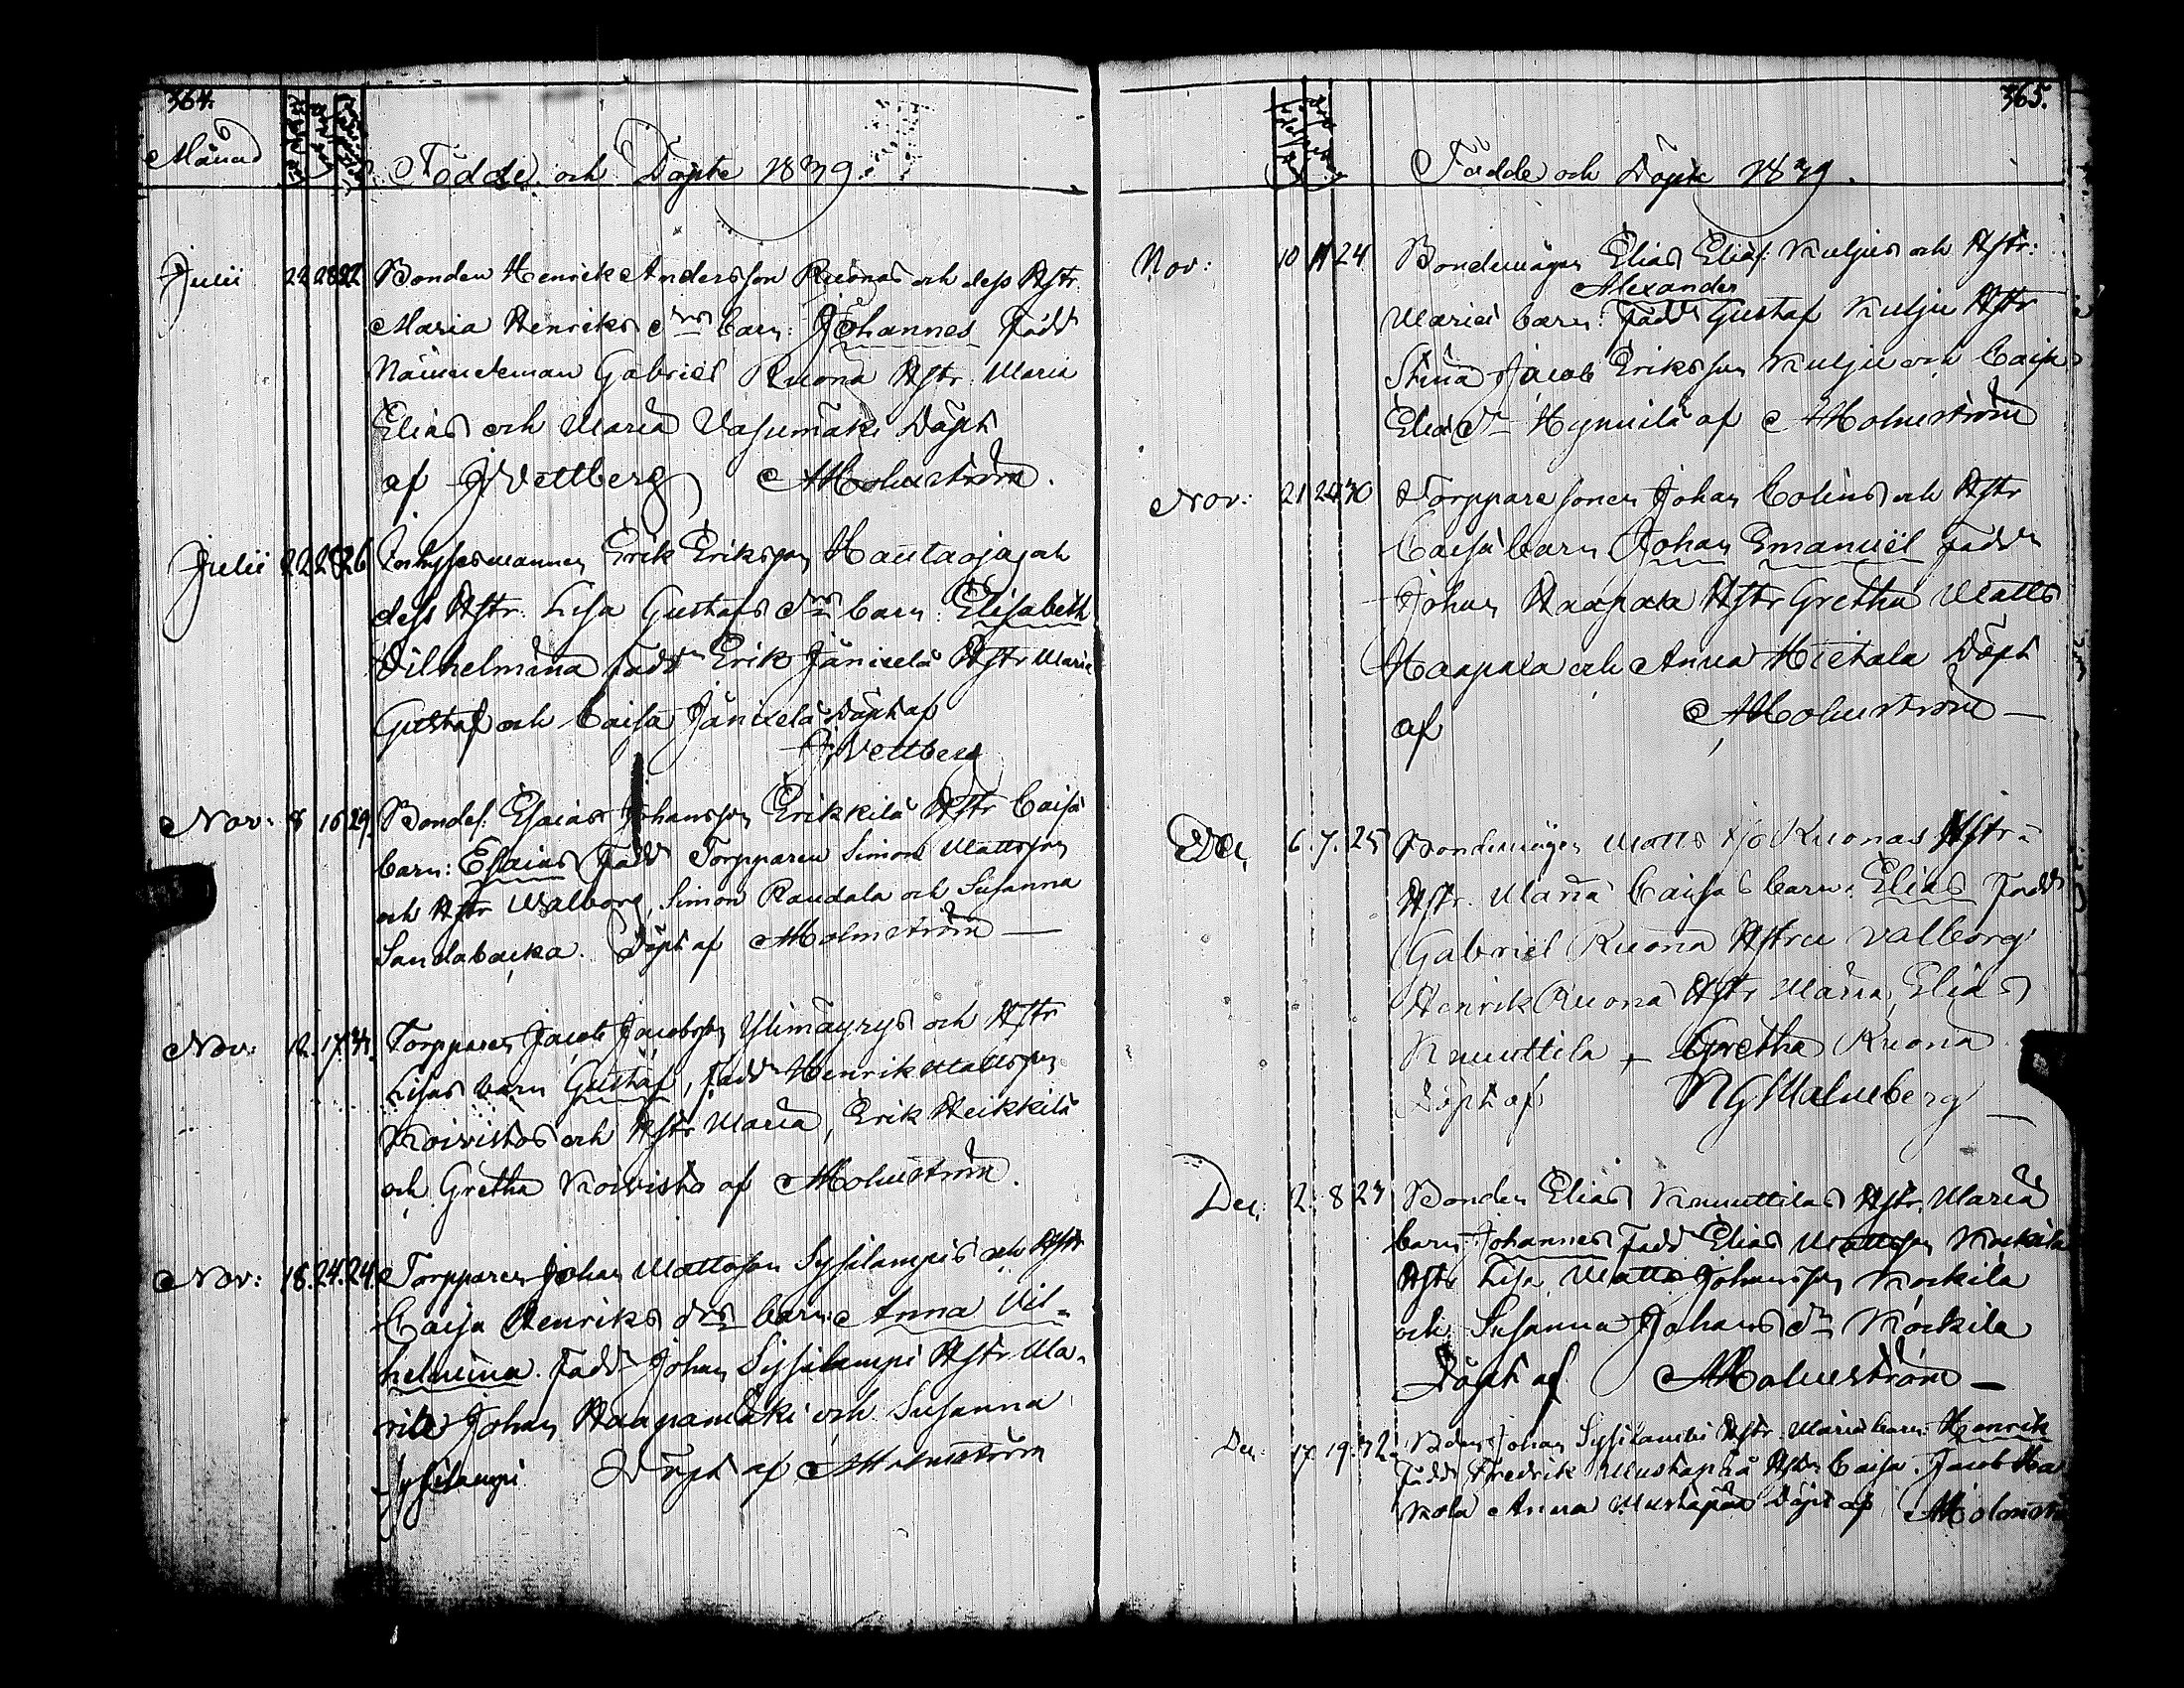 364.
Månad
Födde och Döpte 1839.
Julii 22 28 32 Bonden Henrik Andersson Ruonas och dess Hstr
Maria Henriks drs barn: Johannes Fadd
Nämndeman Gabriel Ruona Hstr: Maria
Elias och Maria Vasumäki Döpt
af J Wettberg AHolmström.
Julii 22 28 26 Inhysesmannen Erik Eriksson Hautaoja och
dess Hstr. Lisa Gustafs drs barn: Elisabeth
Vilhelmina fadd Erik Jäniselä Hstr Maria
Gustaf och Caisa Jäniselä Döpt af
J Wettberg
Nov: 8 16 29. Bondes: Esaias Johansson Erikkilä Hstr Caisa
barn: Esaias Fadd Torpparen Simon Mattsson
och Hstr Walborg, Simon Raudala och Susanna
Sandabacka. Döpt af AHolmström
Nov: 12. 17 34. Torpparen Jacob Jacobsson Ylimäyrys och Hstr
Lisas barn Gustaf, Fadd Henrik Mattsson
Koivistos och Hstr Maria, Erik Heikkilä
och Gretha Koivisto af AHolmström.
Nov: 18. 24. 24. Torpparen Johan Mattsson Sysilampis och Hstr
Caisa Henriks drs barn: Anna Vil-
helmina. Fadd Johan Sysilampi Hstr Ma-
ria Johan Haapamäki och Susanna
Sysilampi Döpt af AHolmström
365.
Födde och Döpte 1839.
Nov: 10 11 24 Bondemågen Elias Eliass: Kuljus och Hstr:
Alexander
Marias barn: Fadd Gustaf Kulju Hstr
Stina Jacob Eriksson Kulju och Caisa
Elias dr Hynnilä af AHolmström
Nov: 21 24 30 Torppare sonen Johan Colius och Hstr
Caisa barn Johan Emanuel Fadd
Johan Haapala Hstr Gretha Matts
Haapala och Anna Hietala Döpt
af AHolmström
Dec, 6. 7. 25 Bondemågen Matts Ruonas Hstr
Hstr. Maria Caisas barn: Elias Fadd
Gabriel Ruona Hstru Valborg
Henrik Ruona Hstr Maria, Elias
Knuuttila, Gretha Ruona
Döpt af N G Malmberg
Dec: 2. 8 23 Bonden Elias Knuuttilas Hstr. Maria
barn: Johannes Fadd Elias Mattsson Köckilä
Hstr Lisa Matts Johansson Köckilä
och Susanna Johans dr Köckilä
Döpt af AHolmström
Dec: 17 19. 32 Johan Sysilambi Hstr. Maria barn: Henrik
Fadd Fredrik Mustapää Hstr Caisa. Jacob Ha
kola Anna Mustapää Döpt af AHolmströ